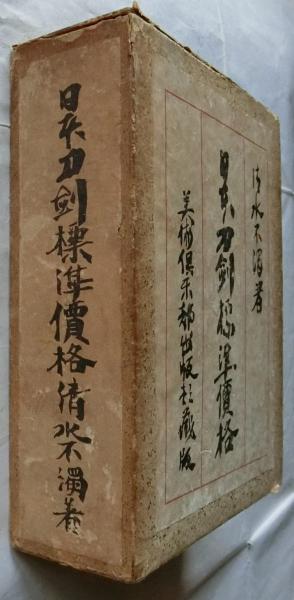 日本刀剣標準價格 清水不濁著
清水不濁著
日本刀剣標準價格
美術倶楽部出版部藏版